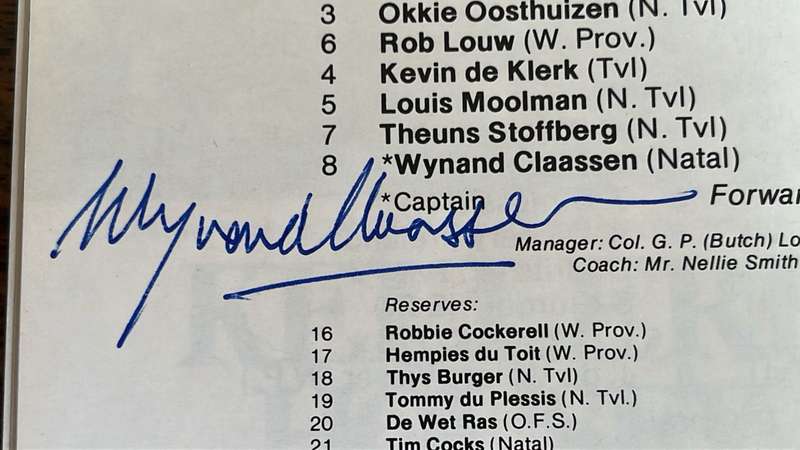 3 Okkie Oosthuizen (N. Tvl)
6 Rob Louw (W. Prov.)
4 Kevin de Klerk (Tvl)
5 Louis Moolman (N. Tvl)
7 Theuns Stoffberg (N. Tvl)
8 *Wynand Claassen (Natal)
*Captain Forwar
Wynand Claassen
Manager: Col. G. P. (Butch) Lo
Coach: Mr. Nellie Smith
Reserves:
16 Robbie Cockerell (W. Prov.)
17 Hempies du Toit (W. Prov.)
18 Thys Burger (N. Tvl)
19 Tommy du Plessis (N. Tvl.)
20 De Wet Ras (O.F.S.)
21 Tim Cocks (Natal)